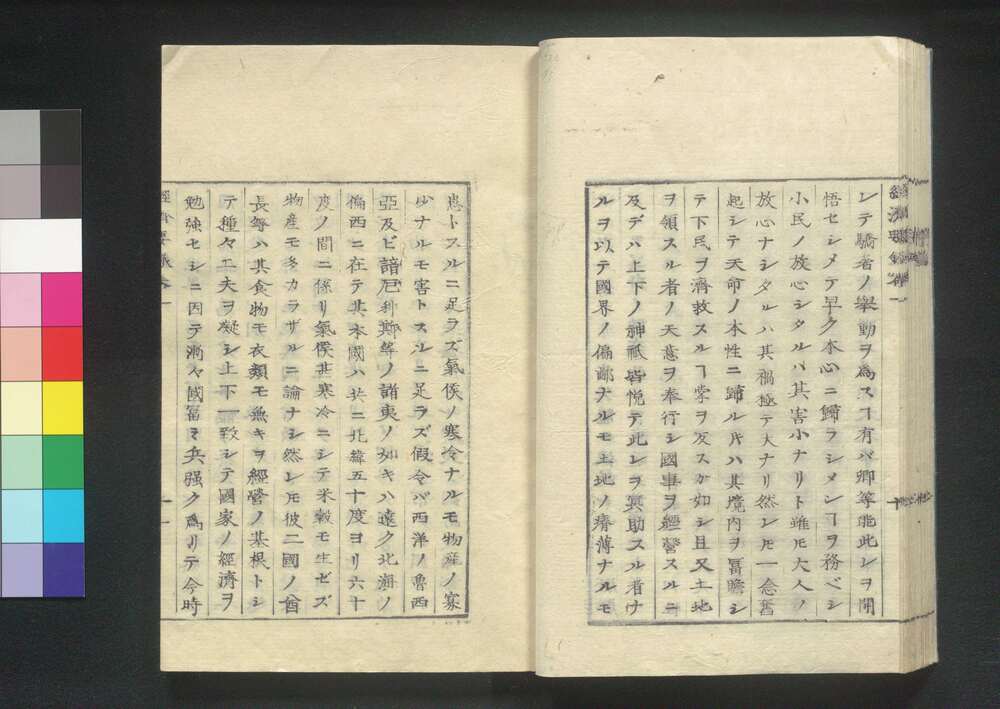 シテ驕奢ノ舉動ヲ為スヿ有バ卿等能此レヲ開
悟セシメテ早ク本心ニ歸ラシメンヿヲ務ベシ
小民ノ放心シタルハ其害小ナリト雖𪜈大人ノ
放心ナシタルハ其禍極テ大ナリ然レ𪜈一念奮
起シテ天命ノ本性ニ歸ル片ハ其境内ヲ冨贍シ
テ下民ヲ濟救スルヿ掌ヲ反スガ如シ且又土地
ヲ領スル者ノ天意ヲ奉行シ國事ヲ經營スルニ
及デハ上下ノ神祇皆悦テ此レヲ冥助スル者ナ
ルヲ以テ國界ノ偏鄙ナルモ土地ノ瘠薄ナルモ
患トスルニ足ラズ氣侯ノ寒冷ナルモ物産ノ寡
少ナルモ害トスルニ足ラズ假令バ西洋ノ魯西
亞及ビ諳厄利斯等ノ諸夷ノ如キハ遠ク北海ノ
偏西ニ在テ其本國ハ共ニ北緯五十度ヨリ六十
度ノ間ニ係リ氣侯甚寒冷ニシテ米穀モ生ゼズ
物産モ多カラザルニ論ナシ然レ𪜈彼二國ノ酋
長等ハ其食物モ衣類モ無キヲ經營ノ基根トシ
テ種々工夫ヲ凝シ上下一致シテ國家ノ經濟ヲ
勉強セシニ因テ漸々國冨ミ兵强ク爲リテ今時